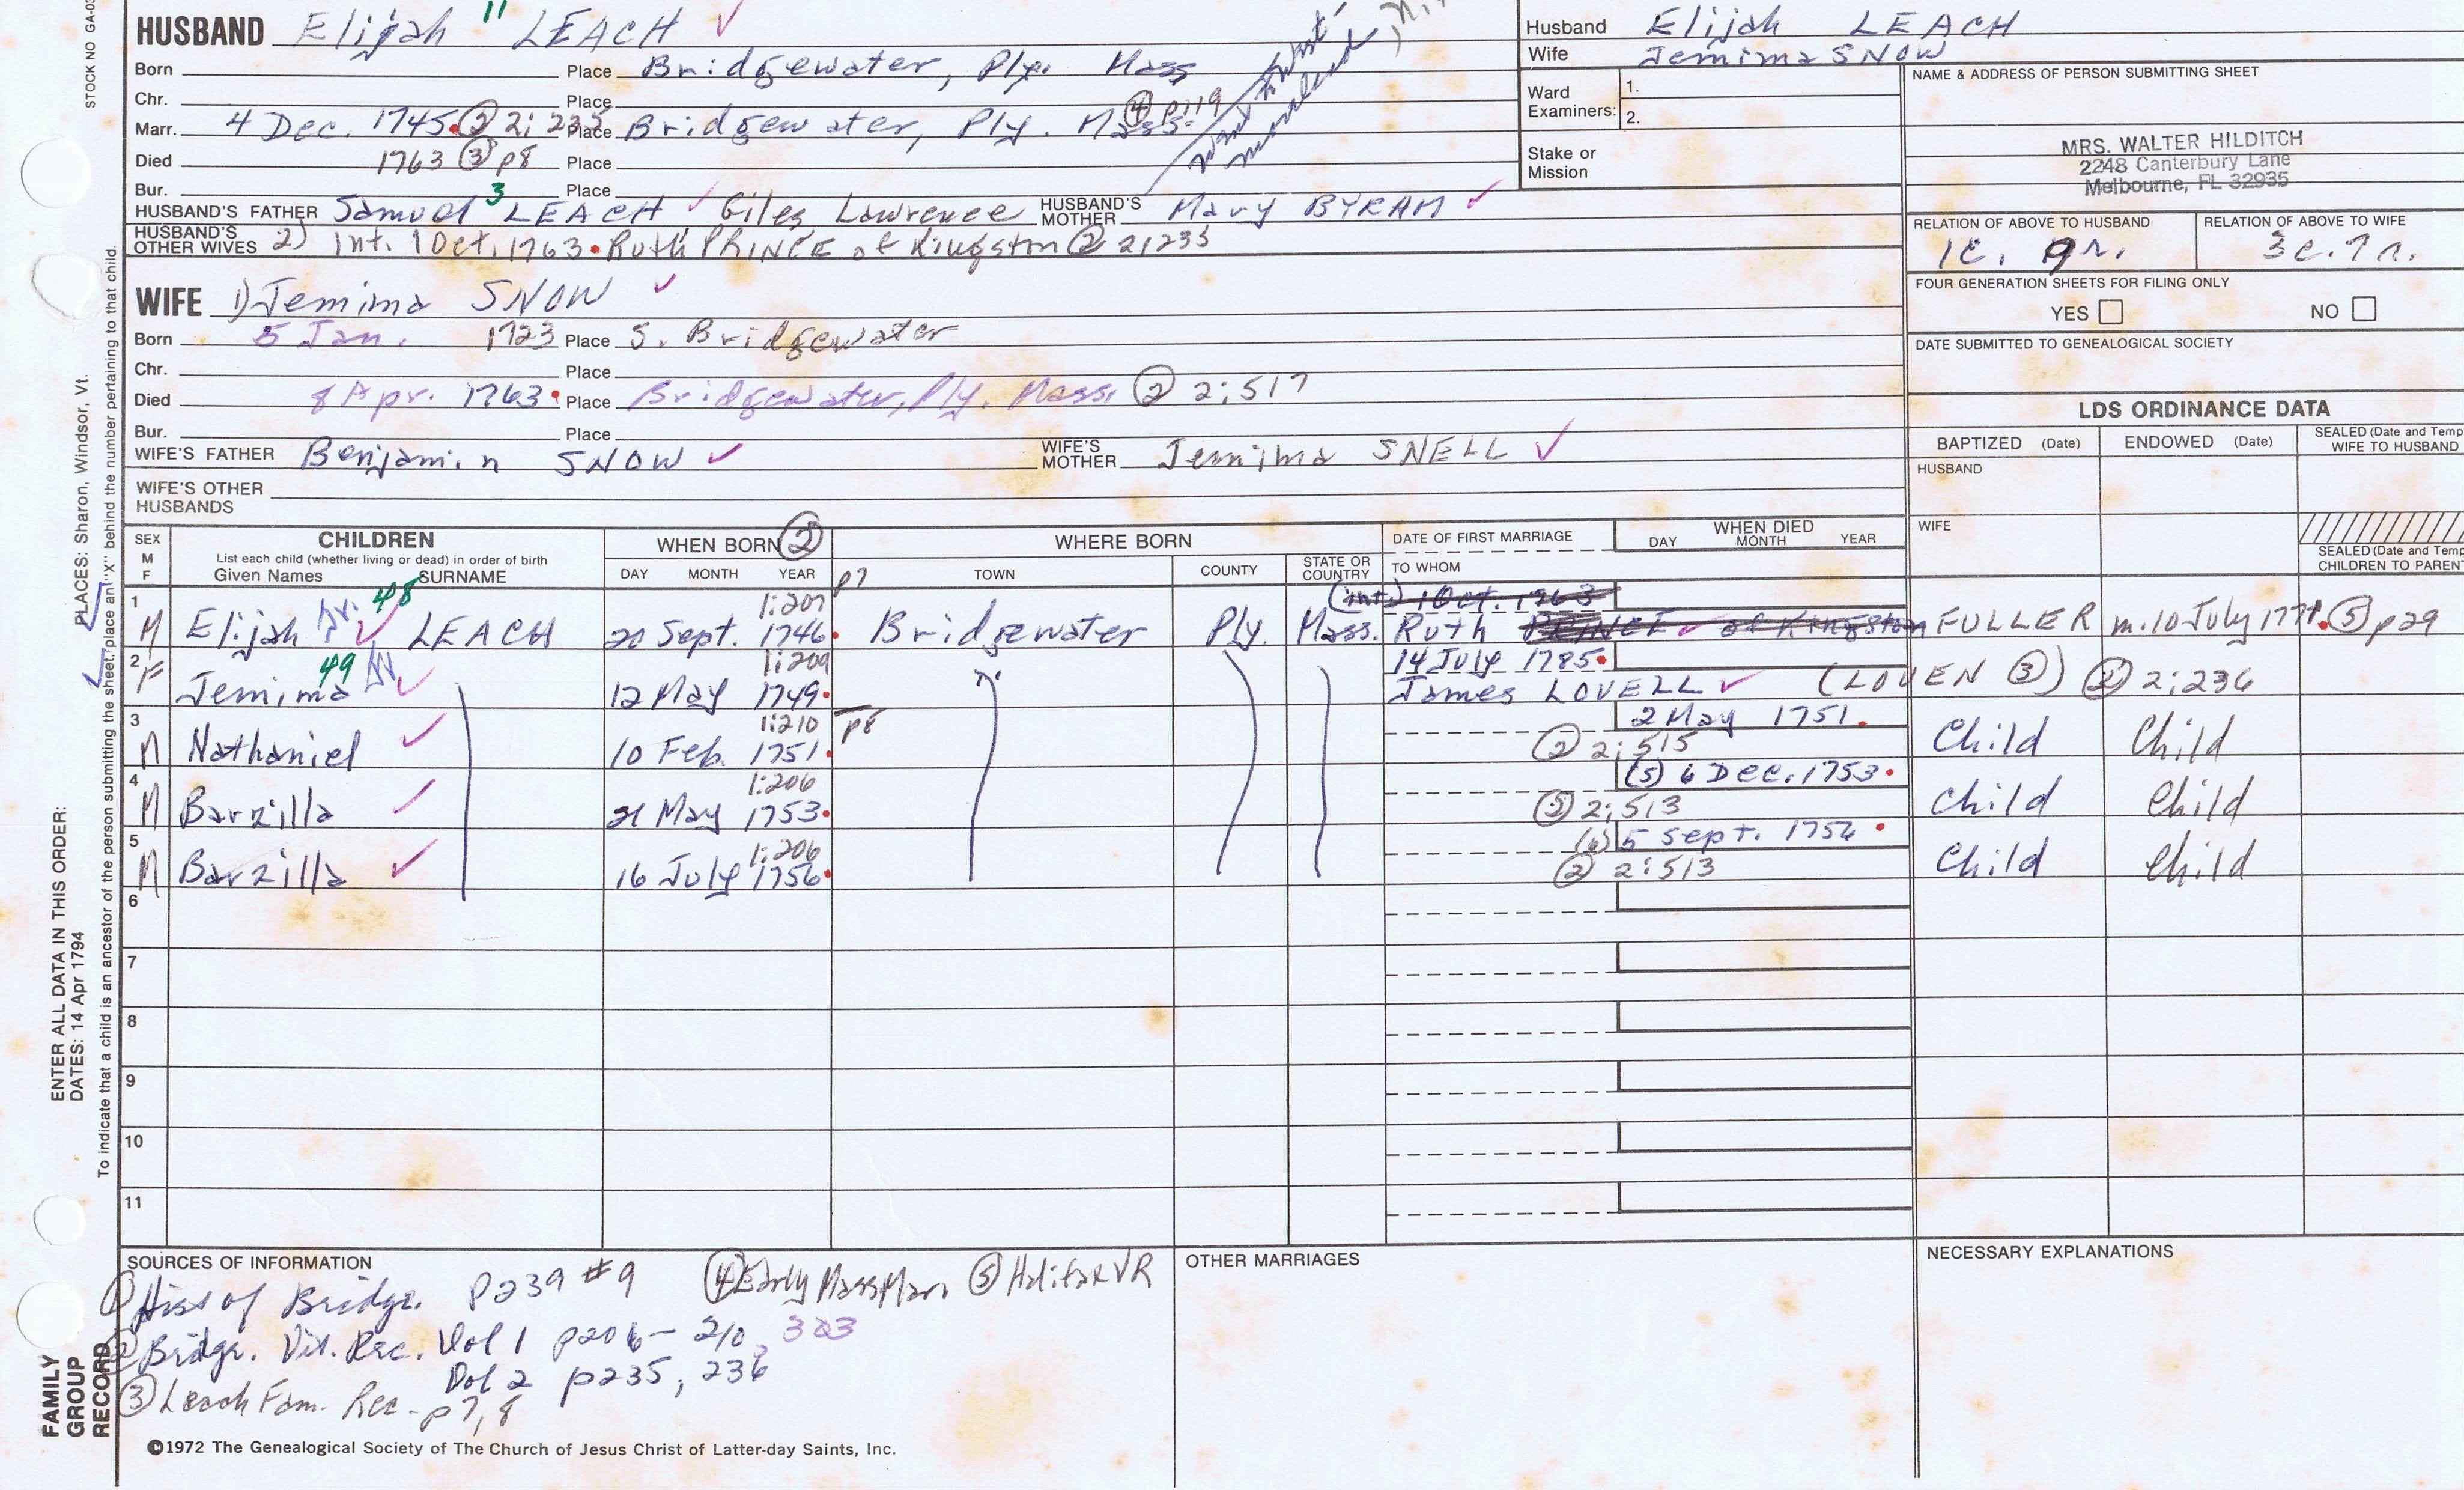 STOCK NO GA-03
HUSBAND Elijah 11 LEACH ✓
Born Place Bridgewater, Ply. Mass
Chr. Place
Marr. 4 Dec. 1745. ② 2:235 Place Bridgewater, Ply. Mass. ④ p119
Died 1763 ③ p8 Place
Bur. Place
went to West
moreland
HUSBAND'S FATHER Samuel 3 LEACH ✓ Giles, Lawrence HUSBAND'S MOTHER Mary BYRAM ✓
HUSBAND'S OTHER WIVES 2) Int. 1 Oct. 1763. Ruth PRINCE of Kingston ② 2:235
WIFE 1) Jemima SNOW ✓
Born 5 Jan. 1723 Place S. Bridgewater
Chr. Place
Died 8 Apr. 1763. Place Bridgewater, Ply. Mass. ② 2:517
Bur. Place
WIFE'S FATHER Benjamin SNOW ✓ WIFE'S MOTHER Jemima SNELL ✓
WIFE'S OTHER HUSBANDS
Husband Elijah LEACH
Wife Jemima SNOW
Ward Examiners: 1.
2.
Stake or Mission
NAME & ADDRESS OF PERSON SUBMITTING SHEET
MRS. WALTER HILDITCH
2248 Canterbury Lane
Melbourne, FL 32935
RELATION OF ABOVE TO HUSBAND RELATION OF ABOVE TO WIFE
1c. 9r. 3c. 7r.
FOUR GENERATION SHEETS FOR FILING ONLY
YES NO
DATE SUBMITTED TO GENEALOGICAL SOCIETY
LDS ORDINANCE DATA
BAPTIZED (Date) ENDOWED (Date) SEALED (Date and Temp WIFE TO HUSBAND
HUSBAND
WIFE
SEALED (Date and Temp CHILDREN TO PAREN
SEX M F
CHILDREN
List each child (whether living or dead) in order of birth
Given Names SURNAME
WHEN BORN ②
DAY MONTH YEAR
WHERE BORN
TOWN COUNTY STATE OR COUNTRY
DATE OF FIRST MARRIAGE
TO WHOM
WHEN DIED
DAY MONTH YEAR
p7
1 1:207 (int.) 1 Oct. 1763
M Elijah 48 ✓ LEACH 20 Sept. 1746. Bridgewater Ply. Mass. Ruth PRINCE ✓ of Kingston FULLER m. 10 July 1771. ⑤ p29
2 49 1:209 14 July 1785.
F Jemima ✓ 12 May 1749. " James LOVELL ✓ (LOVEN ③) ② 2:236
3 1:210 p8 2 May 1751.
M Nathaniel ✓ 10 Feb. 1751. ② 2:515 Child Child
4 1:206 (5) 6 Dec. 1753.
M Barzilla ✓ 21 May 1753. ② 2:513 Child Child
5 1:206 (6) 5 Sept. 1756.
M Barzilla ✓ 16 July 1756. ② 2:513 Child Child
6
7
8
9
10
11
SOURCES OF INFORMATION
① Hist of Bridge. p239 #9 ④ Early Mass Marr ⑤ Halifax VR
② Bridge. Vit. Rec. Vol 1 p206-210, 323
Vol 2 p235, 236
③ Leach Fam. Rec. - p7, 8
OTHER MARRIAGES
NECESSARY EXPLANATIONS
©1972 The Genealogical Society of The Church of Jesus Christ of Latter-day Saints, Inc.
ENTER ALL DATA IN THIS ORDER:
DATES: 14 Apr 1794
PLACES: Sharon, Windsor, Vt.
To indicate that a child is an ancestor of the person submitting the sheet, place an "X" behind the number pertaining to that child.
FAMILY
GROUP
RECORD